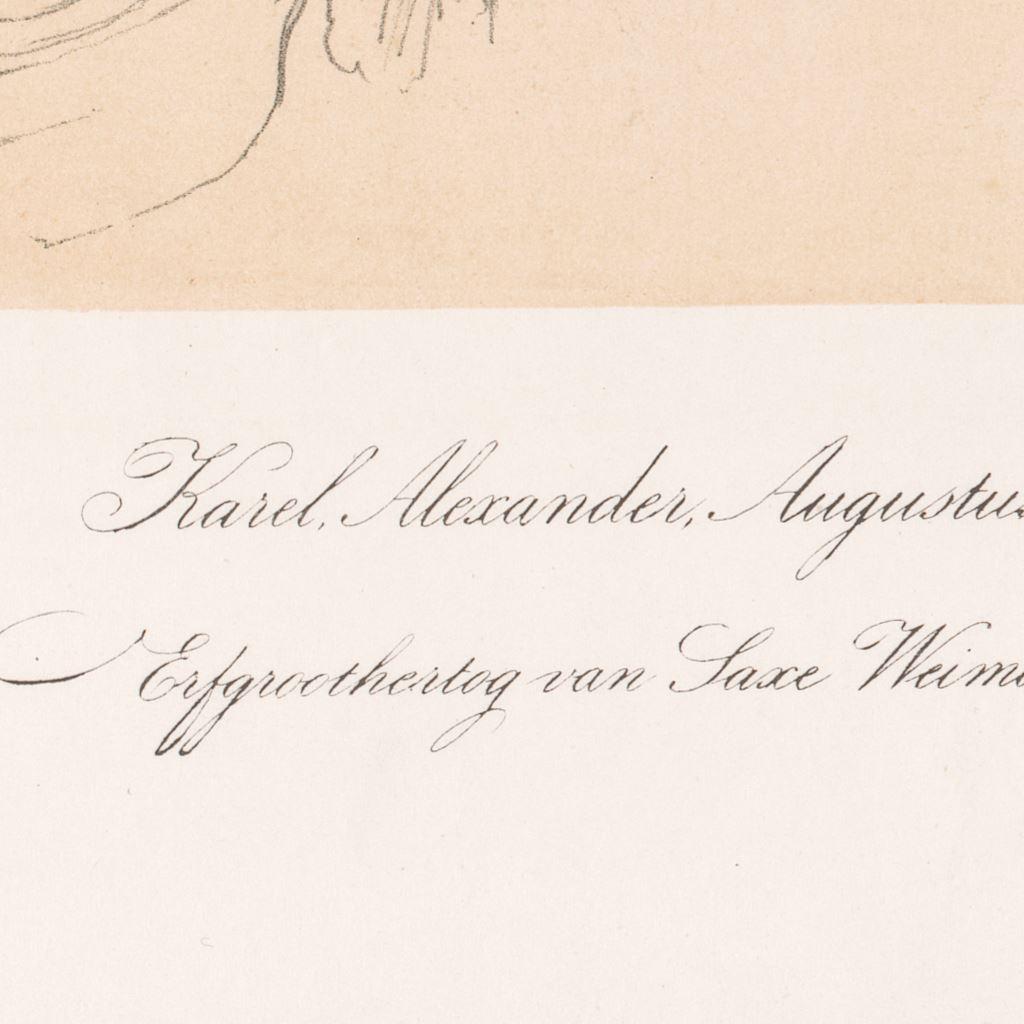 Karel, Alexander, Augustus
Erfgroothertog van Saxe